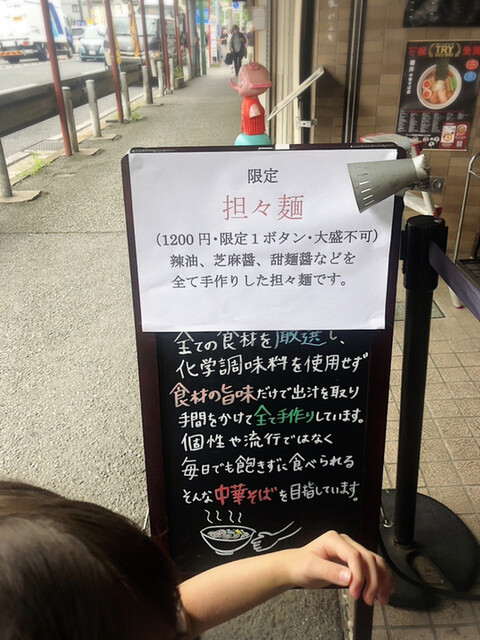 限定
担々麺
(1200円・限定1ボタン・大盛不可)
辣油、芝麻醤、甜麺醤などを
全て手作りした担々麺です。
全ての食材を厳選し、
化学調味料を使用せず
食材の旨味だけで出汁を取り
手間をかけて全て手作りしています。
個性や流行ではなく
毎日でも飽きずに食べられる
そんな中華そばを目指しています。
祝 TRY 受賞